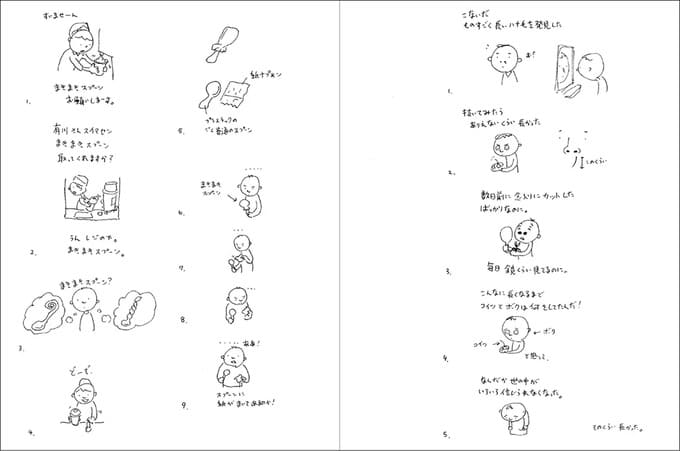 すいませーん
まきまきスプーン
お願いしまーす。
1.
有川さんスイマセン
まきまきスプーン
取ってくれますか?
うん レジの下。
まきまきスプーン。
2.
まきまきスプーン?
3.
どーぞ
4.
紙ナプキン
プラスチックの
ごく普通のスプーン
5.
まきまき
スプーン
6.
7.
8.
ああ!
スプーンに
紙がまいてあるのか!
9.
こないだ
ものすごく長いハナ毛を発見した
お?
1.
抜いてみたら
ありえないくらい長かった
このくらい
2.
数日前に念入りにカットした
ばっかりなのに。
3.
毎日 鏡くらい見てるのに。
こんなに長くなるまで
コイツとボクは何をしてたんだ!
ボク
コイツ
4.
と思って、
なんだか世の中が
いろいろ信じられなくなった。
5.
そのくらい長かった。